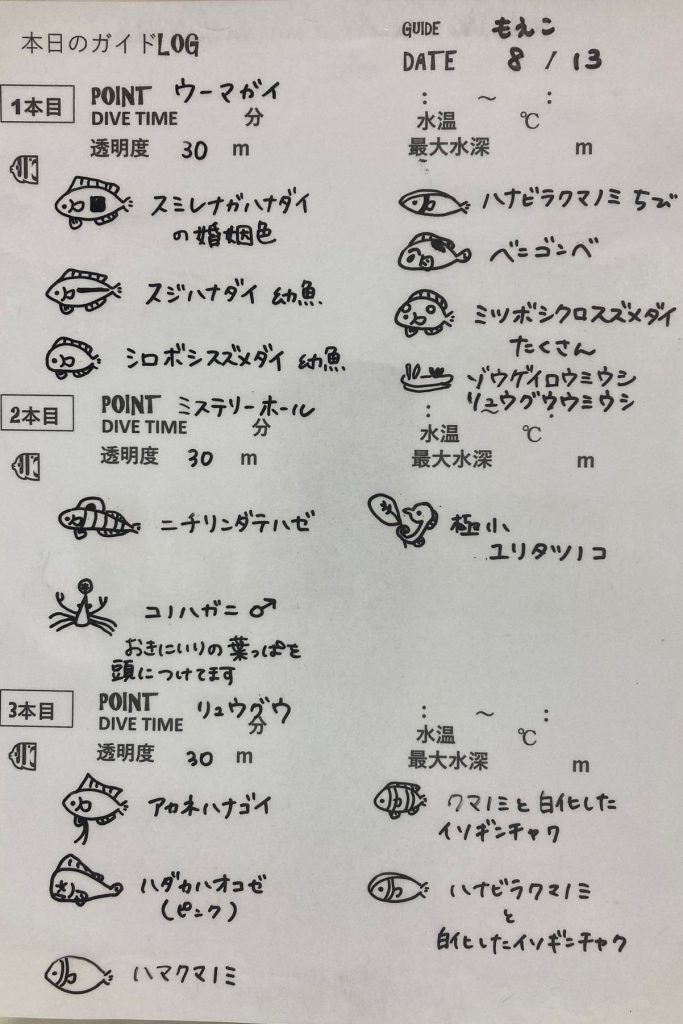 本日のガイドLOG
GUIDE もえこ
DATE 8 / 13
1本目 POINT ウーマガイ
DIVE TIME 分
透明度 30 m
: ～ :
水温 ℃
最大水深 m
スミレナガハナダイ
の婚姻色
スジハナダイ 幼魚
シロボシスズメダイ 幼魚
ハナビラクマノミ ちび
ベニゴンベ
ミツボシクロスズメダイ
たくさん
ゾウゲイロウミウシ
リュウグウウミウシ
2本目 POINT ミステリーホール
DIVE TIME 分
透明度 30 m
: ～ :
水温 ℃
最大水深 m
ニチリンダテハゼ
コノハガニ♂
おきにいりの葉っぱを
頭につけてます
極小
ユリタツノコ
3本目 POINT リュウグウ
DIVE TIME 分
透明度 30 m
: ～ :
水温 ℃
最大水深 m
アカネハナゴイ
ハダカハオコゼ
(ピンク)
ハマクマノミ
クマノミと白化した
イソギンチャク
ハナビラクマノミ
と
白化したイソギンチャク